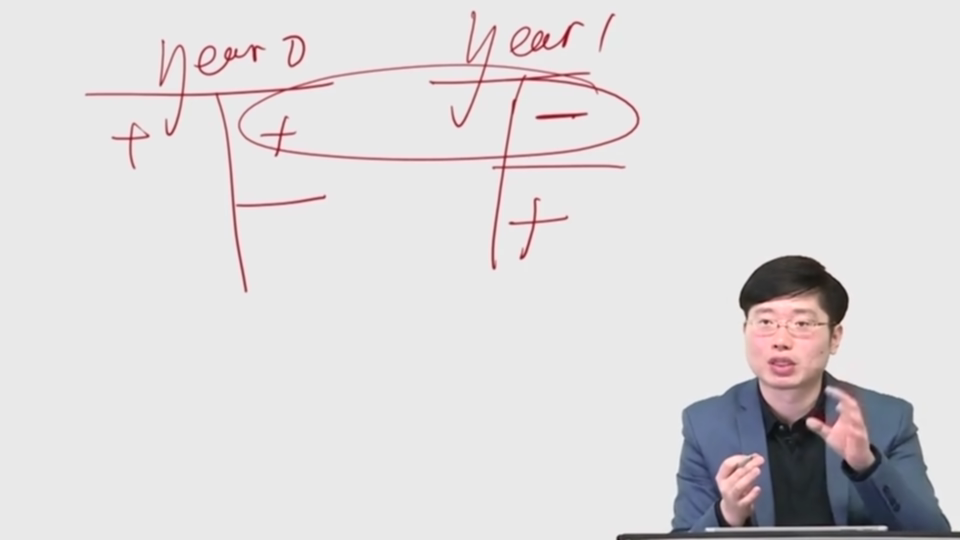 Year 0 Year 1
+ + -
- +